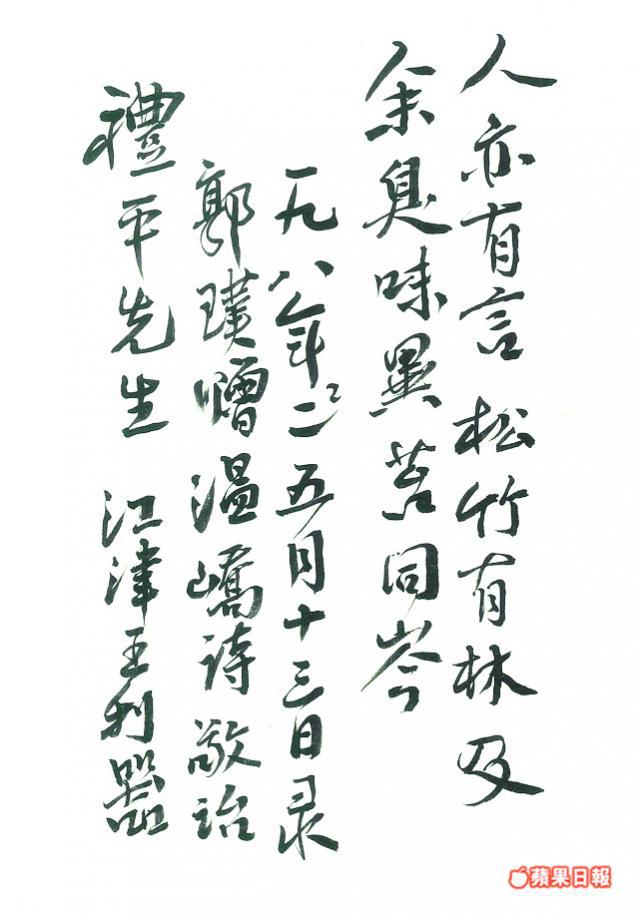 人亦有言 松竹有林 及
余臭味異苔同岑
一九八年二五月十三日录
郭璞贈温嶠詩敬詒
禮平先生 江津王利器
蘋果日報